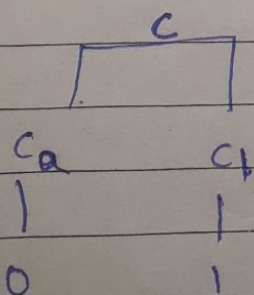 C
Ca C1
0 1